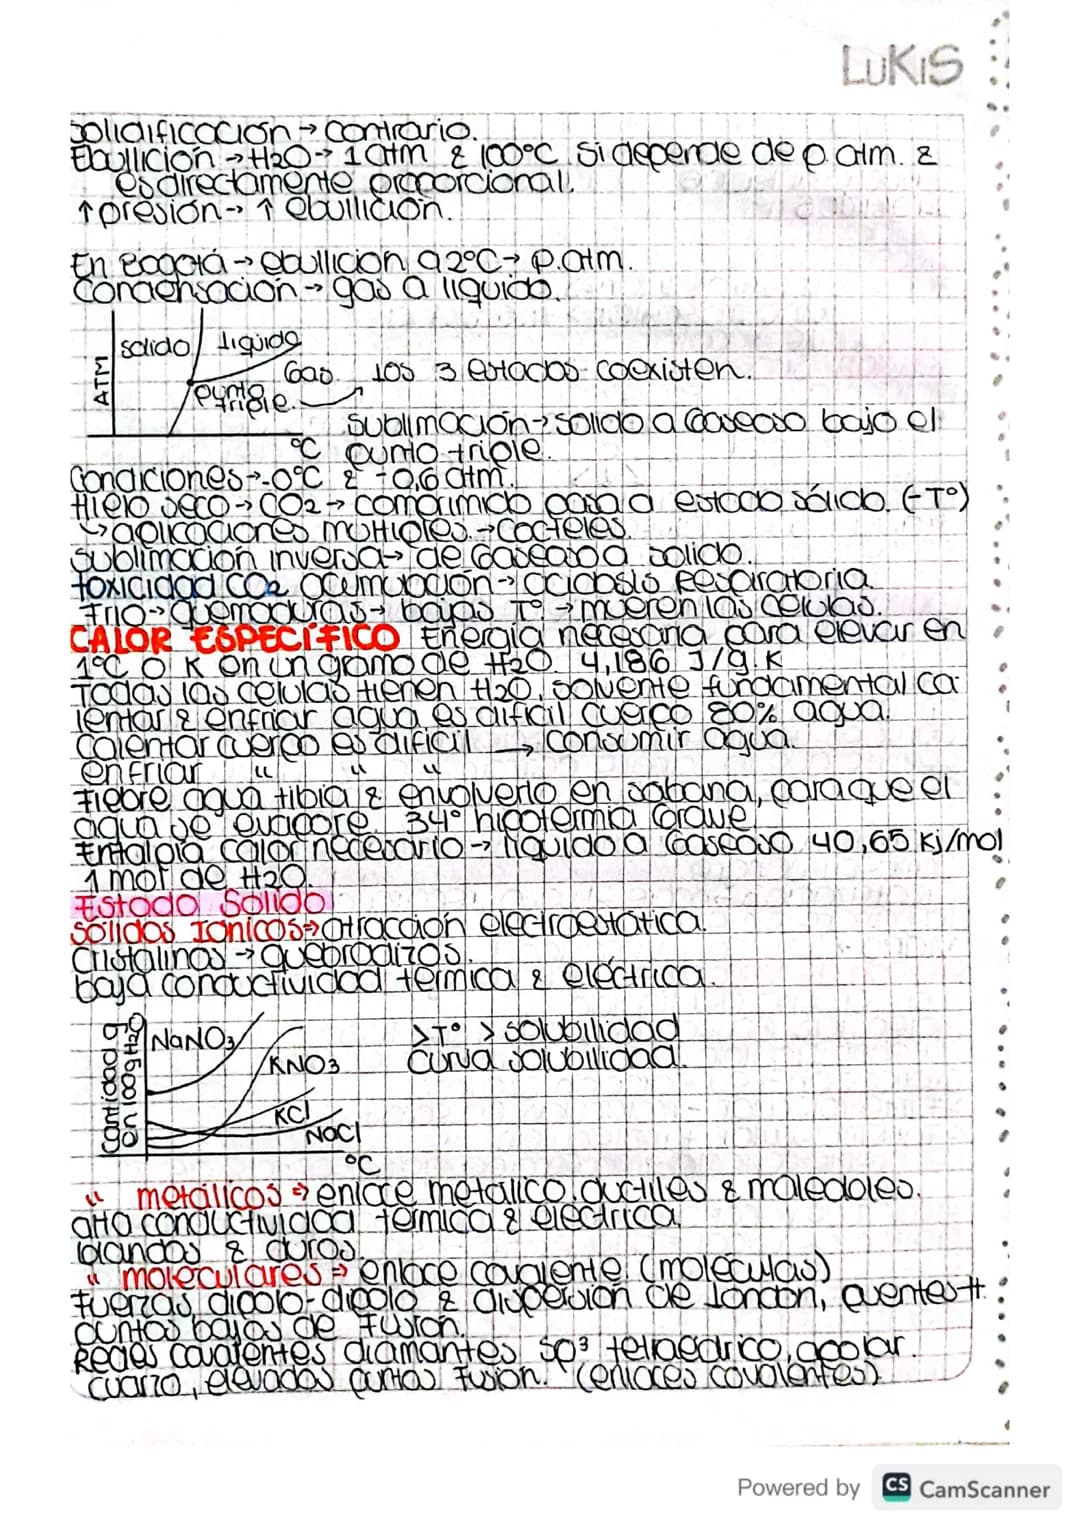 LUKIS
Solidificación → Contrario.
Ebullición → H2O → 1 atm & 100°C Si depende de p. atm. &
es directamente proporcional.
↑ presión → ↑ ebullición.
En Bogotá → ebullición 92°C → p. atm.
Condensación → gas a líquido.
ATM
sólido
líquido
Gas
los 3 estados coexisten.
punto
triple.
°C
Sublimación → solido a Gaseoso bajo el
punto triple.
Condiciones → -0°C & -0,6 atm.
Hielo seco → CO2 → comprimido pasa a estado sólido. (-T°)
↳ aplicaciones múltiples. → cocteles.
Sublimación inversa → de Gaseoso a solido.
toxicidad CO2 acumulación → acidosis Respiratoria.
Frio → quemaduras → bajas T° → mueren las celulas.
CALOR ESPECÍFICO Energía necesaria para elevar en
1°C o K en un gramo de H2O 4,186 J/g.K
Todas las celulas tienen H2O, solvente fundamental ca-
lentar & enfriar agua es dificil cuerpo 80% agua.
Calentar cuerpo es dificil → consumir agua.
enfriar " " "
Fiebre agua tibia & envolverlo en sabana, para que el
agua se evapore. 34° hipotermia Grave
Entalpia calor necesario → líquido a Gaseoso 40,65 Kj/mol
1 mol de H2O.
Estado Solido
Sólidos Iónicos ⇒ atracción electroestática.
Cristalinos → quebradizos.
baja conductividad térmica & eléctrica.
Cantidad g
en 100g H2O
NaNO3
KNO3
KCl
NaCl
°C
>T° > solubilidad
Curva solubilidad.
" metálicos ⇒ enlace metálico, ductiles & maleables.
alta conductividad térmica & electrica
blandos & duros.
" moleculares ⇒ enlace covalente (moléculas)
Fuerzas dipolo-dipolo & dispersión de London, puentes H.
puntos bajos de Fusión.
Redes covalentes diamantes sp³ tetraedrico, apolar.
cuarzo, elevados puntos fusion. (enlaces covalentes)
Powered by CS CamScanner